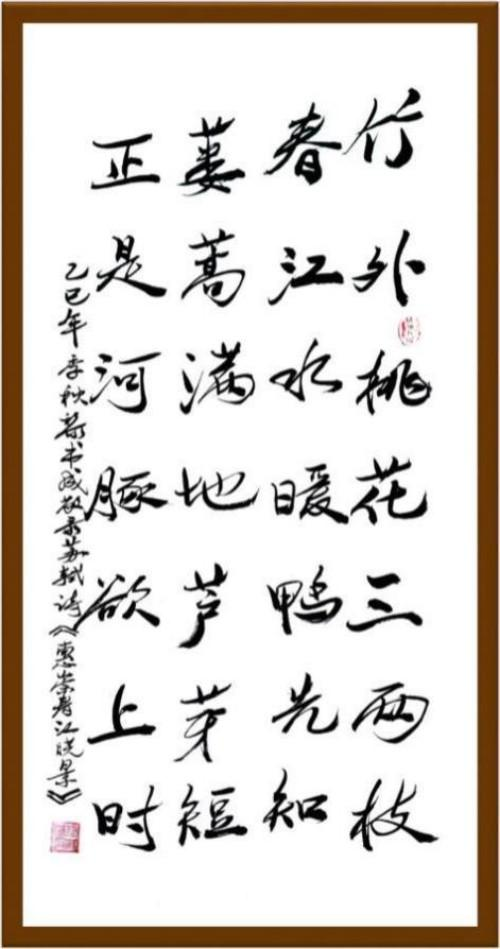 竹外桃花三两枝
春江水暖鸭先知
蒌蒿满地芦芽短
正是河豚欲上时
乙巳年季秋蔡书盛敬录苏轼诗《惠崇春江晓景》